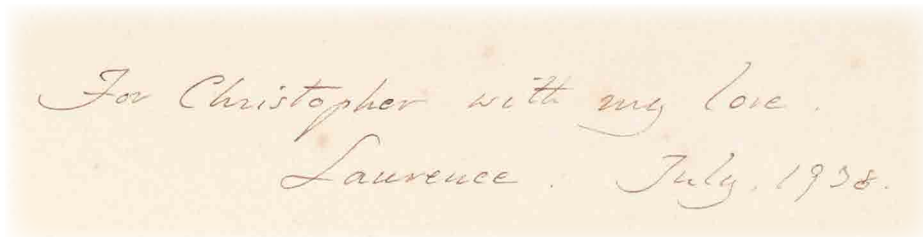 For Christopher with my love.
Laurence. July. 1938.